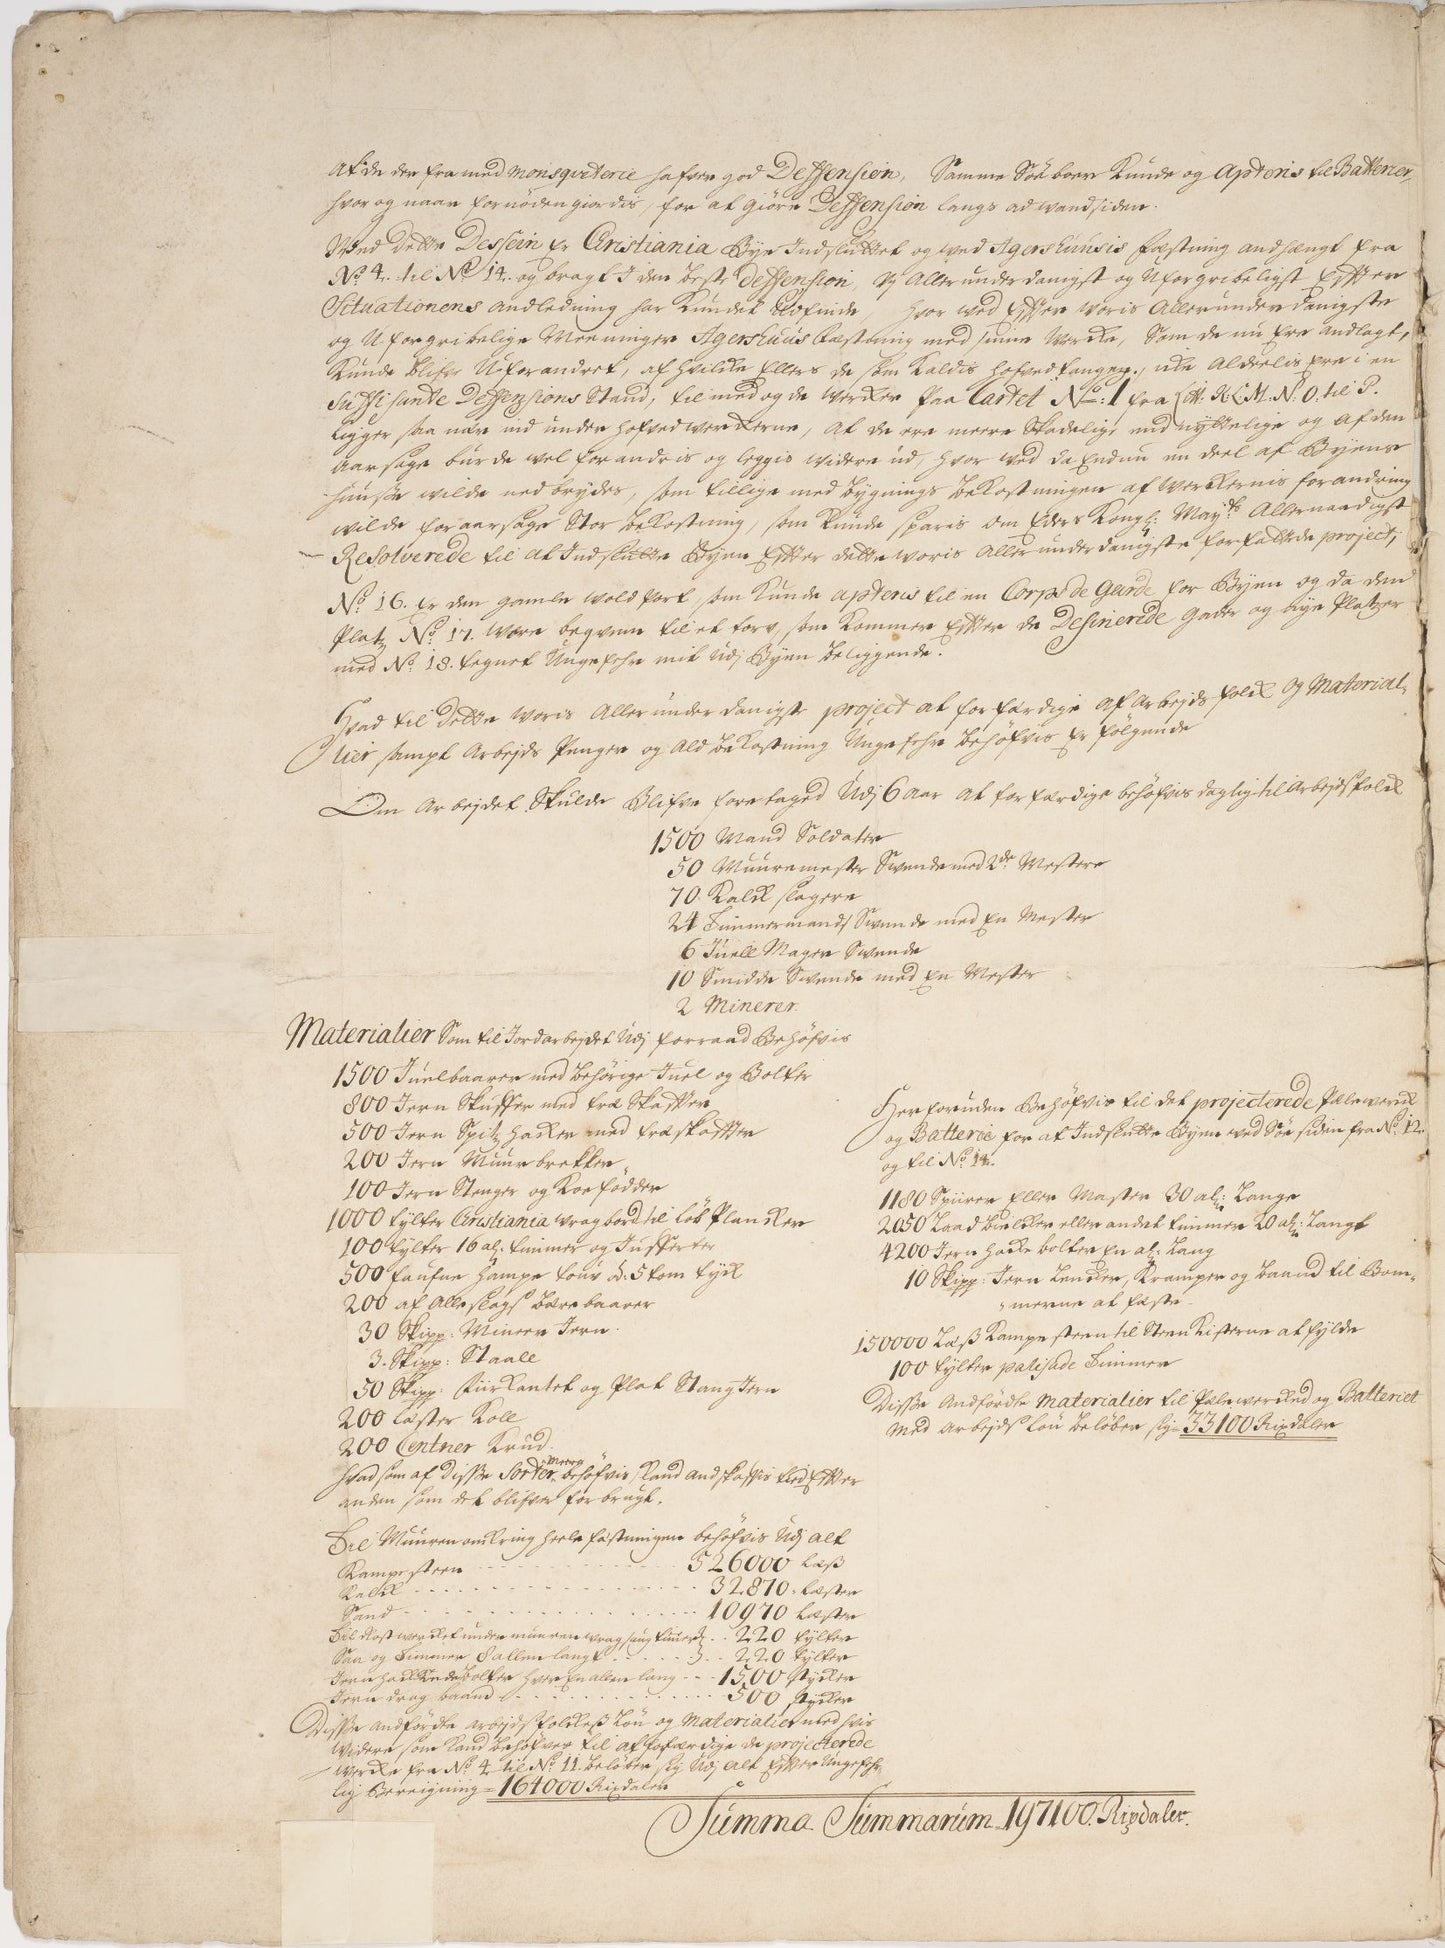 af de der fra med Monsqveterie hafver god Deffension, Samme Söe boer kunde og apteris til Batterier,
hvor og naar fornöden giordis, for at giöre Deffension langs ad wandsiden.
Med dette Dessein er Christiania Bye Indsluttet og wed Agershuusis fæstning andhængt fra
No 4. til No 14. og bragt I den beste deffension, vj Allerunderdanigst og Uforgribeligst Effter
Situationens andledning har kundet udfinde, hvor wed Effter woris Allerunderdanigste
og Uforgribelige Meeninger Agershuus fæstning med sinne Wercke, Som de nu ere andlagt,
kunde blifve Uforandret, af hvilcke Ellers de som kaldis hofvedtangen, icke aldeelis ere i en
suffisante Deffensions Stand, til med og de Wercker paa Cartet No: 1 fra Litt. K. L. M. N. O. til P.
ligger saa nær ind under hofvedwerckerne, at de ere meere skadelige end nyttelige og af den
aarsage burde vel forandris og leggis widere ud, hvor ved da Endnu en deel af Byens
huusse wilde nedbrydes, som tillige med bygnings bekostningen af Werckernis forandring
wilde foraarsage Stor bekostning, som kunde sparis om Eders Kongl: Mayts Allernaadigst
Resolverede til at Indslutte Byen Effter dette woris Allerunderdanigste forfattede project,
No 16. Er den gamle wold port, som kunde apteris til en Corps de Garde for Byen og da den
Platz No 17. være beqvem til et torv, som kommer Effter de Desinerede gader og nye Platzer
med No 18. tegnet Ungefehr mit udj Byen beliggende.
Hvad til dette Woris Allerunderdanigste project at forfærdige af Arbejdsfolck og Material-
lier sampt Arbejds Penger og Ald bekostning Ungefehr behöfvis er fölgende
Om Arbejdet Skulde Blifve foretaged Udj 6 aar at forfærdige behöfvis daglig til Arbejdsfolck
1500 Mand Soldater
50 Muuremester Svende med 2de Mestere
70 Kalck slagere
24 Timmermands Svende med En Mester
6 Juell Mager Svende
10 Smidde Svende med En Mester
2 Minerer.
Materialier Som til Jordarbejdet Udj forraad Behöfvis
1500 Juelbaarer med behörige Juel og Bolter
800 Jern Skuffer med træ Skaffter
500 Jern Spitz hacker med træskaffter
200 Jern Muur brekker
100 Jern Stenger og Koefödder
1000 tylter Christiania vragbord til Löb Plancker
100 tylter 16 al: timmer og Jufferter
500 faufne hampe touv á 5 tom tyck
200 af Alle slags bære baarer
30 Skipp: Minere Jern.
3. Skipp: Staale
50 Skipp: fiirkantet og Plat Stang Jern
200 læster Koll
200 Centner Krud.
hvad som af disse Sorter meere behöfvis kand andskaffis tied Effter
anden som det blifver forbrugt.
Til Muuren omkring heele fæstningen behöfvis Udj alt
Kampesteen 526000 læss
Kalck 32870. læster
Sand 10970 læster
Til Rostwercket under muuren wrag saug timer 220 tylter
Saa og Timmer 8 allen langt 220 tylter
Jern hacke bolter hver En allen lang 1500 stycker
Jern drag baand 500 stycker
Disse andfördte arbejdsfolckes Lön og Materialier med hvis
widere som kand behöfves til at forfærdige de projecterede
wercke fra No 4 til No 11. beløber sig Udj alt Effter Ungefehr-
lig Bereigning = 164000 Rixdaler
Her foruden Behöfvis til det projecterede Pælewerck
og Batterie for at Indslutte Byen wed Söe siden fra No 12.
og til No 14.
1180 Spiirer Eller Master 30 al: Lange
2050 Laad Bielcker eller andet timmer 20 al: Langt
4200 Jern hacke bolter En al: Lang
10 Skipp: Jern Lencker, Kramper og baand til Bom-
merne at fæste.
150000 Læss Kampe steen til SteenKisterne at fylde
100 tylter palisade Timmer
Disse Andfördte Materialier til Pælewercked og Batteriet
Med arbejds lön beløber sig = 33100 Rixdaler
Summa Summarum = 197100. Rixdaler.